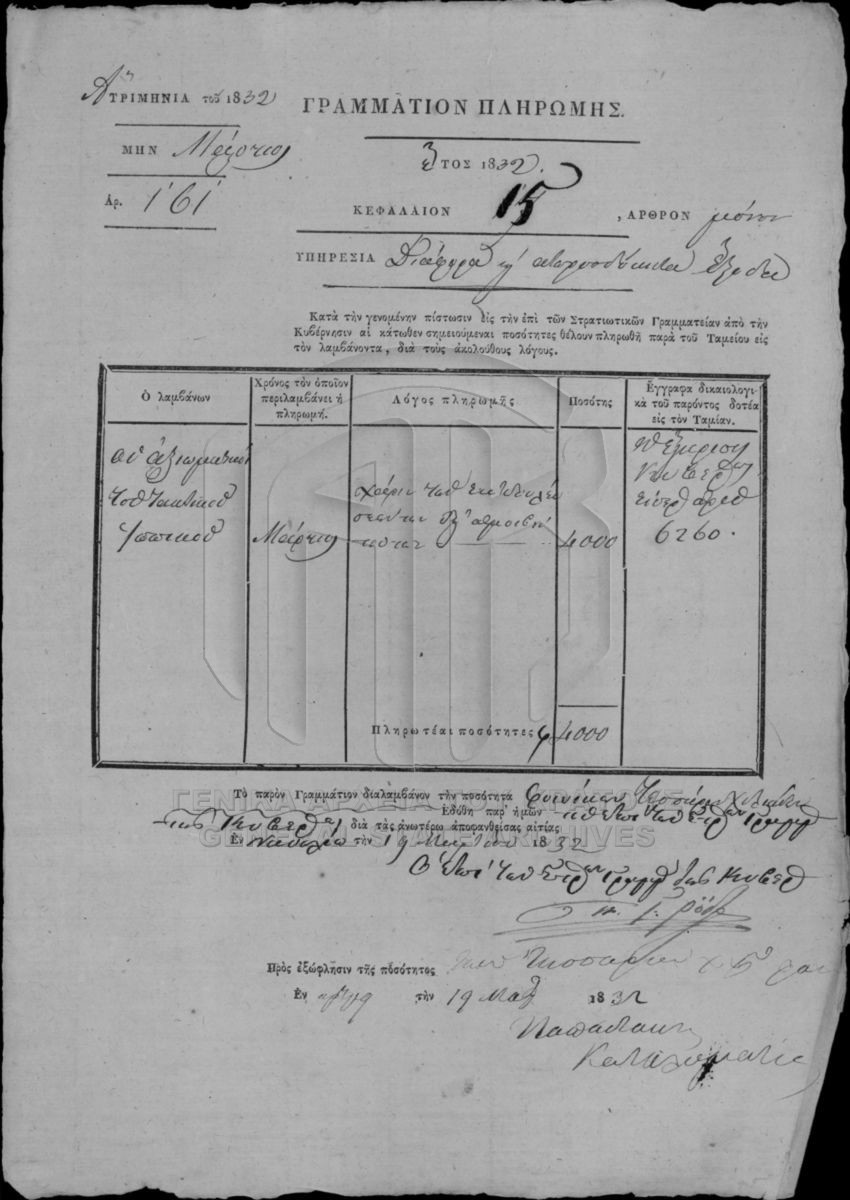 Αη ΤΡΙΜΗΝΙΑ τοῦ 1832
ΓΡΑΜΜΑΤΙΟΝ ΠΛΗΡΩΜΗΣ.
ΜΗΝ Μάρτιος
ΕΤΟΣ 1832.
Αρ. 161
ΚΕΦΑΛΑΙΟΝ 15, ΑΡΘΡΟΝ μόνον
ΥΠΗΡΕΣΙΑ Διάφορα κ' ἀπροσδόκητα ἔξοδα
Κατὰ τὴν γενομένην πίστωσιν εἰς τὴν ἐπὶ τῶν Στρατιωτικῶν Γραμματείαν ἀπὸ τὴν
Κυβέρνησιν αἱ κάτωθεν σημειούμεναι ποσότητες θέλουν πληρωθῆ παρὰ τοῦ Ταμείου εἰς
τὸν λαμβάνοντα, διὰ τοὺς ἀκολούθους λόγους.
Ὁ λαμβάνων
Χρόνος τὸν ὁποῖον
περιλαμβάνει ἡ
πληρωμή.
Λόγος πληρωμῆς
Ποσότης
Ἔγγραφα δικαιολογι-
κὰ τοῦ παρόντος δοτέα
εἰς τὸν Ταμίαν.
Οἱ ἀξιωματικοὶ
τοῦ τακτικοῦ
ἱππικοῦ
Μάρτιος
χάριν τῶν
4000
ἡ ἔγκρισις
6260.
Πληρωτέαι ποσότητες φ 4000
Τὸ παρὸν Γραμμάτιον διαλαμβάνον τὴν ποσότητα φοινίκων τεσσάρων χιλιάδων
Ἐδόθη παρ' ἡμῶν
τῆς Κυβερ διὰ τὰς ἀνωτέρω ἀποφανθείσας αἰτίας
Ἐν Ναυπλίῳ τὴν 19 Μαρτίου 1832
Ὁ ἐπὶ τῶν τῆς Κυβερ
Π. Γ. Ρόδιος
Πρὸς ἐξώφλησιν τῆς ποσότητος τῶν τεσσάρων χ
Ἐν τὴν 19 Μαρ 1832
ΓΕΝΙΚΑ ΑΡΧΕΙΑ ΤΟΥ ΚΡΑΤΟΥΣ
GREEK STATE ARCHIVES